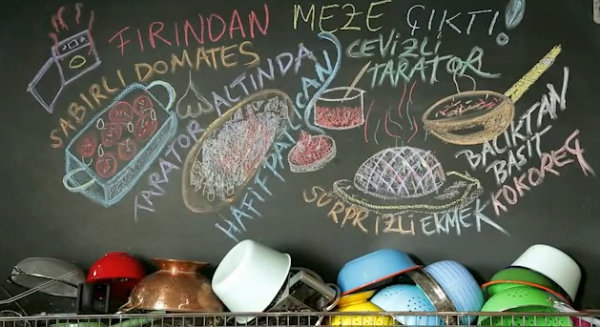 FIRINDAN MEZE ÇIKTI!
SABIRLI DOMATES
TARATOR ALTINDA
HAFİF PATLICAN
CEVİZLİ
TARATOR
SÜRPRİZLİ EKMEK
BALIKTAN
BASİT
KOKOREÇ